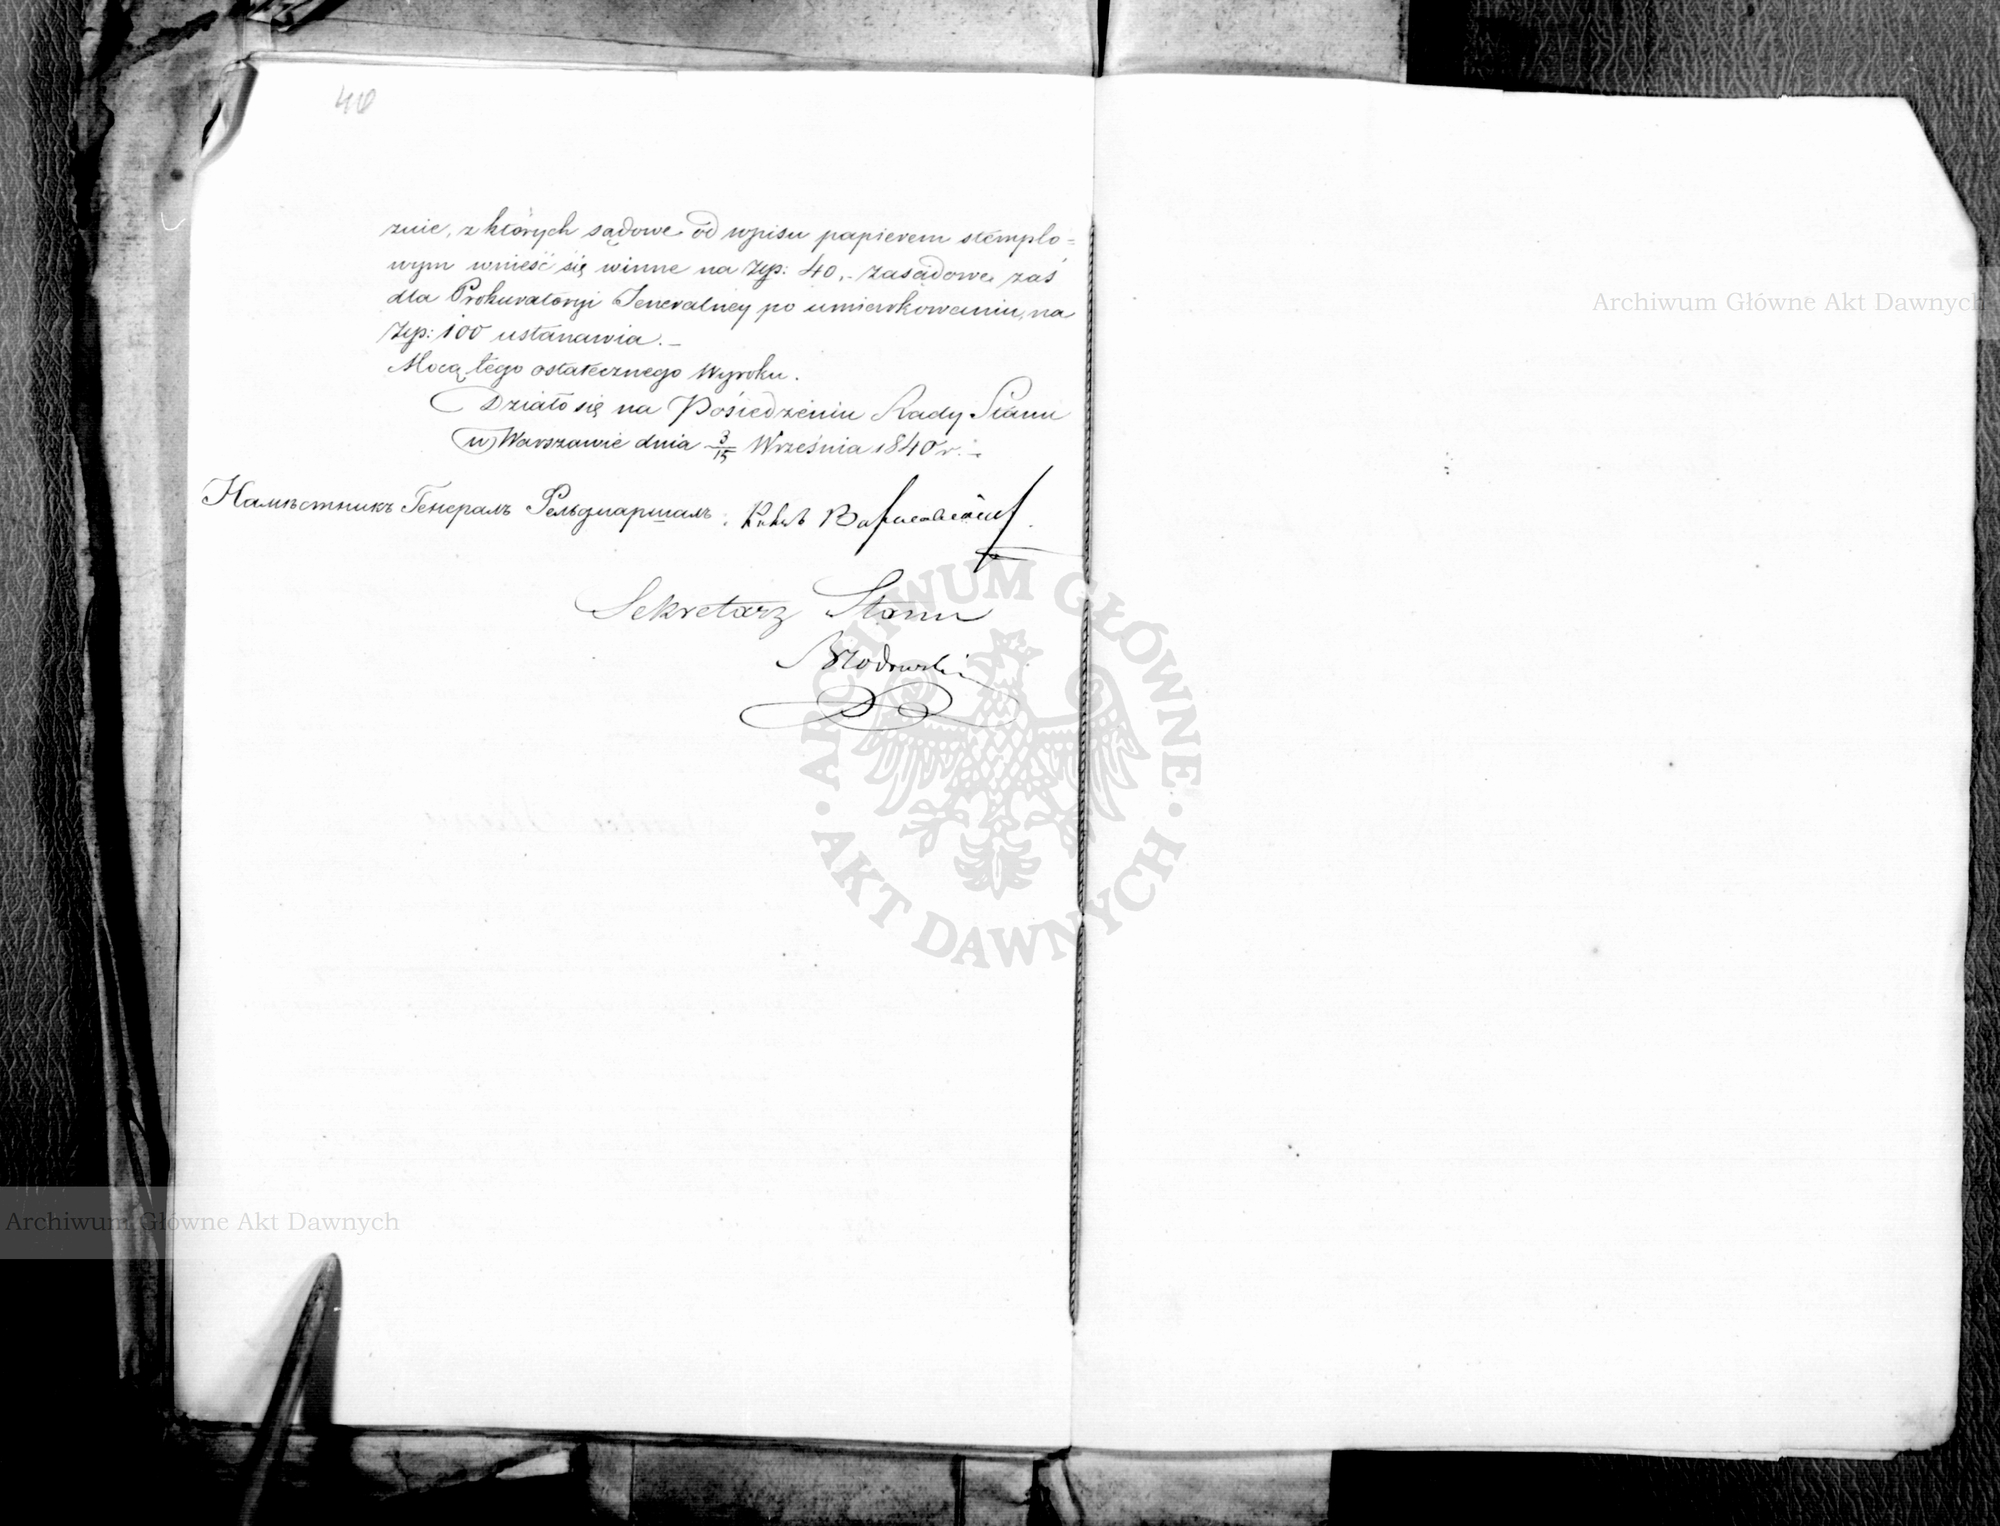 40
znie, z których sądowe od wpisu papierem stemplo=
wym wnieść się winne na Złp: 40,- zasądowe zaś
dla Prokuratoryi Jeneralney po umiarkowaniu, na
Złp: 100 ustanawia. –
Mocą tego ostatecznego Wyroku.
Działo się na Posiedzeniu Rady Stanu
w Warszawie dnia 3/15 Września 1840 r. –
Намѣстникъ Генералъ Фельдмаршалъ: Князь Варшавскій
Sekretarz Stanu
Brzozowski
Archiwum Główne Akt Dawnych
ARCHIWUM GŁÓWNE AKT DAWNYCH
Archiwum Główne Akt Dawnych